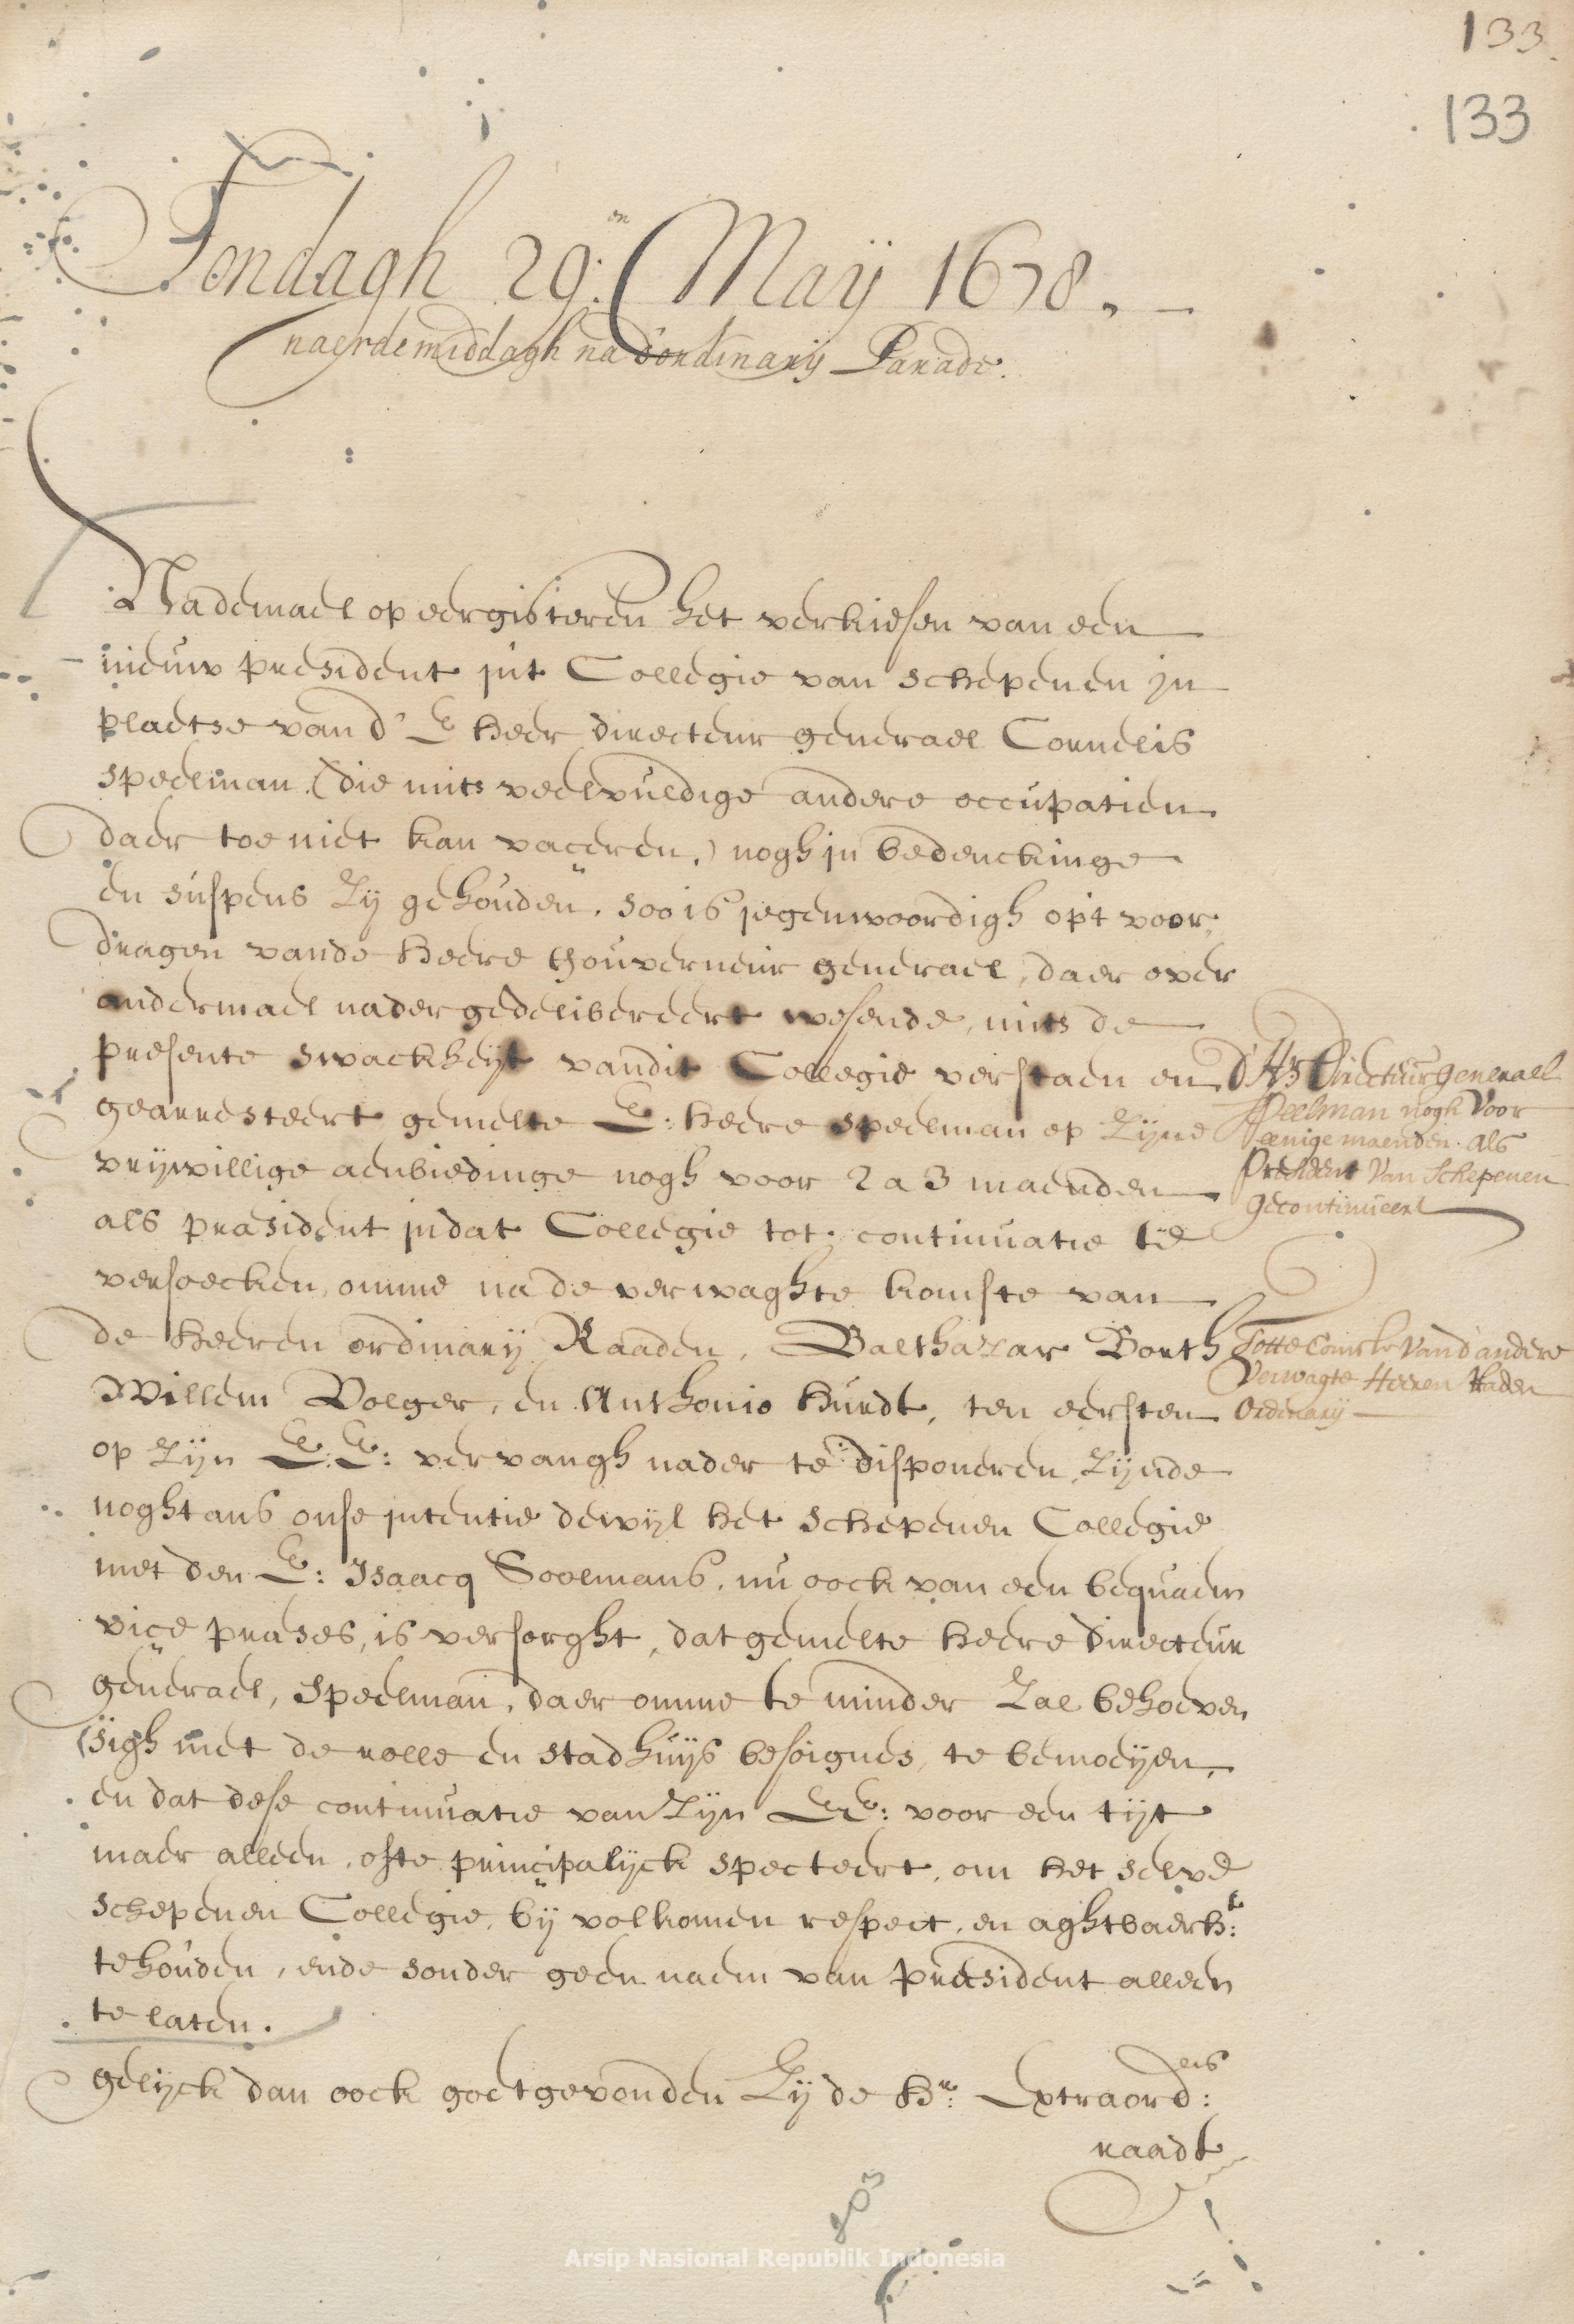 133
133
Sondagh 29:en Maÿ 1678.
naerdemiddagh na d'ordinarij Parade.
Nademael op eergisteren het verkiesen van een
nieuw president int Collegie van schepenen in
plaetse van d' E heer directeur generael Cornelis
speelman (die mits veelvuldige andere occupatien
daer toe niet kan vaceren,) nogh in bedenckinge
en suspens zij gehouden, soo is jegenwoordigh opt voor,
dragen vande heere Gouverneur generael, daer over
andermael nader gedelibereert wesende, mits de
presente swackheijt van dit Collegie verstaen en
gearresteert gemelte E: heere speelman op zijne
vrijwillige aenbiedinge nogh voor 2 a 3 maenden
als præsident in dat Collegie tot continuatie te
versoecken, omme na de verwaghte komste van
de heeren ordinarij Raaden, Balthazar Borth
Willem Volger, en Anthonio hurdt, ten eersten
op zijn E:E: vervangh nader te disponeren, zijnde
noghtans onse intentie dewijl het schepenen Collegie
met den E: Isaacq Soolmans, nu oock van een bequaem
vice præses, is versorght, dat gemelte heere directeur
generael, speelman, daer omme te minder zal behoeven
sigh met de rolle en stadhuijs besoignes, te bemoeijen,
en dat dese continuatie van zijn E:E: voor een tijt
maer alleen, ofte principalijck specteert, om het selve
schepenen Collegie, bij volkomen respect, en aghtbaerh:t
te houden, ende sonder geen naem van præsident alleen
te laten.
gelijck dan oock goetgevonden zij de h:r Extraord:eris
raadt
d'Hr Directeur generael
Speelman nogh voor
eenige maenden als
President van Schepenen
gecontinueert
Totte komste van d'andere
verwagte Heeren Raden
Ordinarij
Arsip Nasional Republik Indonesia